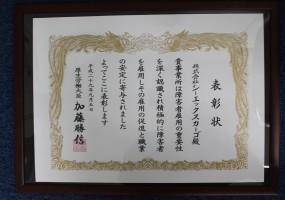 表彰状
株式会社シーエックスカーゴ殿
貴事業所は障害者雇用の重要性
を深く認識され積極的に障害者
を雇用しその雇用の促進と職業
の安定に寄与されました
よってここに表彰します
平成二十九年九月五日
厚生労働大臣 加藤勝信